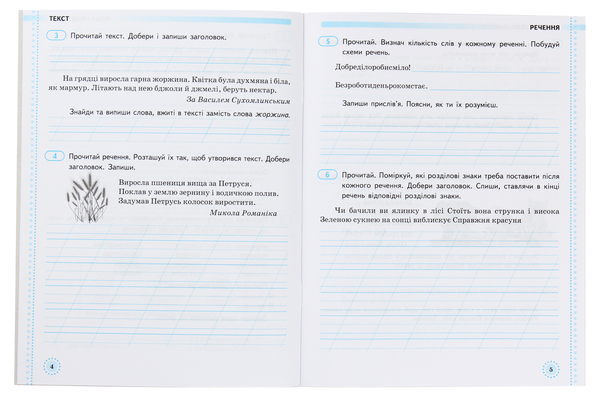 ТЕКСТ
3 Прочитай текст. Добери і запиши заголовок.
На грядці виросла гарна жоржина. Квітка була духмяна і біла,
як мармур. Літають над нею бджоли й джмелі, беруть нектар.
За Василем Сухомлинським
Знайди та випиши слова, вжиті в тексті замість слова жоржина.
4 Прочитай речення. Розташуй їх так, щоб утворився текст. Добери
заголовок. Запиши.
Виросла пшениця вища за Петруся.
Поклав у землю зернину і водичкою полив.
Задумав Петрусь колосок виростити.
Микола Романіка
4
РЕЧЕННЯ
5 Прочитай. Визнач кількість слів у кожному реченні. Побудуй
схеми речень.
Добределоробисміло!
Безроботиденьрокомстає.
Запиши прислів'я. Поясни, як ти їх розумієш.
6 Прочитай. Поміркуй, які розділові знаки треба поставити після
кожного речення. Добери заголовок. Спиши, ставлячи в кінці
речень відповідні розділові знаки.
Чи бачили ви ялинку в лісі Стоїть вона струнка і висока
Зеленою сукнею на сонці виблискує Справжня красуня
5